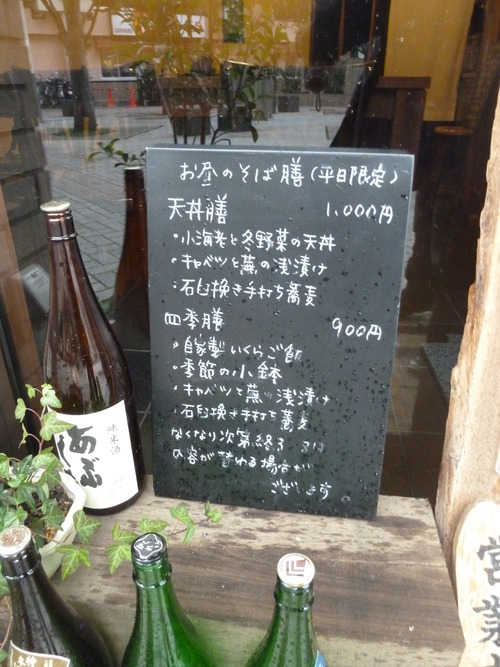 お昼のそば膳(平日限定)
天丼膳 1,000円
・小海老と冬野菜の天丼
・キャベツと蕪の浅漬け
・石臼挽き手打ち蕎麦
四季膳 900円
・自家製いくらご飯
・季節の小鉢
・キャベツと蕪の浅漬け
・石臼挽き手打ち蕎麦
なくなり次第終了
の容が替わる場合が
ございます。
純米酒
あぶ
営業